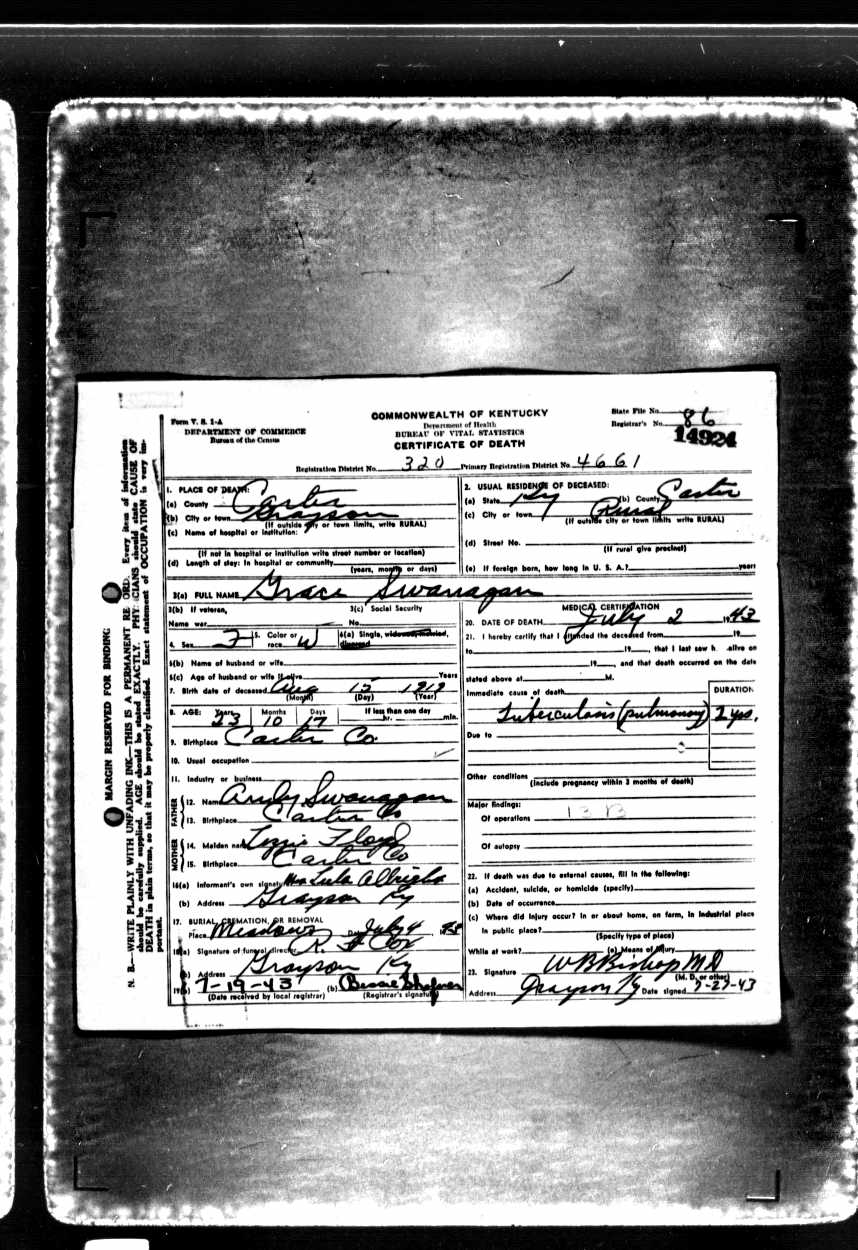 Form V. S. 1-A
DEPARTMENT OF COMMERCE
Bureau of the Census
COMMONWEALTH OF KENTUCKY
Department of Health
BUREAU OF VITAL STATISTICS
CERTIFICATE OF DEATH
State File No.
Registrar's No. 86
14924
Registration District No. 320 Primary Registration District No. 4661
MARGIN RESERVED FOR BINDING
N. B.—WRITE PLAINLY WITH UNFADING INK—THIS IS A PERMANENT RECORD. Every item of information
should be carefully supplied. AGE should be stated EXACTLY. PHYSICIANS should state CAUSE OF
DEATH in plain terms, so that it may be properly classified. Exact statement of OCCUPATION is very im-
portant.
1. PLACE OF DEATH:
(a) County Carter
(b) City or town Grayson
(If outside city or town limits, write RURAL)
(c) Name of hospital or institution:
(If not in hospital or institution write street number or location)
(d) Length of stay: In hospital or community
(years, months or days)
2. USUAL RESIDENCE OF DECEASED:
(a) State Ky (b) County Carter
(c) City or town Rural
(If outside city or town limits write RURAL)
(d) Street No.
(If rural give precinct)
(e) If foreign born, how long in U. S. A.? years
3(a) FULL NAME Grace Swanagan
3(b) If veteran, 3(c) Social Security
Name war No.
4. Sex F 5. Color or race W 6(a) Single, widowed, married, divorced
6(b) Name of husband or wife
6(c) Age of husband or wife if alive Years
7. Birth date of deceased Aug 15 1919
(Month) (Day) (Year)
8. AGE: Years Months Days If less than one day
23 10 17 hr. min.
9. Birthplace Carter Co
10. Usual occupation
11. Industry or business
FATHER
12. Name Andy Swanagan
13. Birthplace Carter Co
MOTHER
14. Maiden name Lizzie Floyd
15. Birthplace Carter Co
16(a) Informant's own signature Mrs Lula Albright
(b) Address Grayson Ky
17. BURIAL, CREMATION, OR REMOVAL
Place Meadows Date July 4 1943
18(a) Signature of funeral director R H Cox
(b) Address Grayson Ky
19(a) 7-19-43 (b) Bessie
(Date received by local registrar) (Registrar's signature)
MEDICAL CERTIFICATION
20. DATE OF DEATH July 2 1943
21. I hereby certify that I attended the deceased from 19
to 19 , that I last saw h alive on
19 , and that death occurred on the date
stated above at M.
Immediate cause of death DURATION
Tuberculosis (pulmonary) 2 yrs.
Due to
Other conditions
(Include pregnancy within 3 months of death)
Major findings: 13 B
Of operations
Of autopsy
22. If death was due to external causes, fill in the following:
(a) Accident, suicide, or homicide (specify)
(b) Date of occurrence
(c) Where did injury occur? In or about home, on farm, in industrial place
in public place?
(Specify type of place)
While at work? (e) Means of Injury
23. Signature W B Bishop M D
(M. D. or other)
Address Grayson Ky Date signed 7-27-43